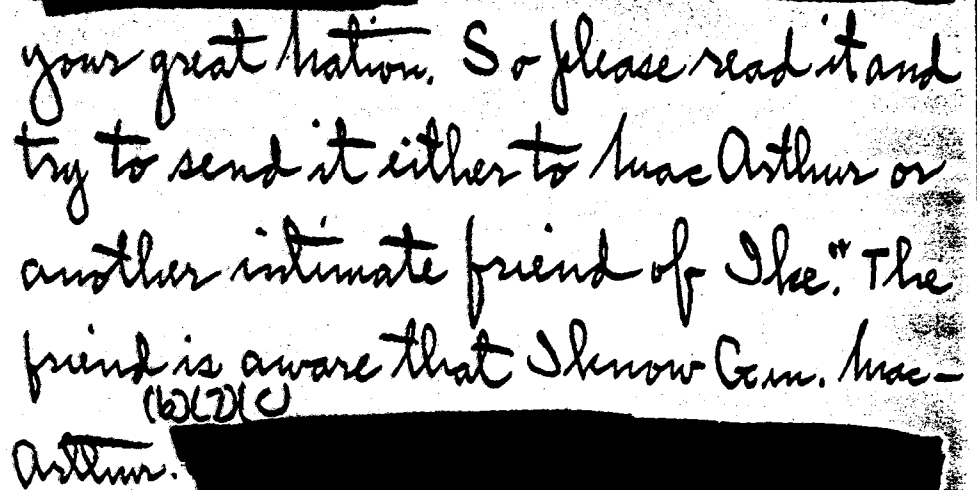 your great Nation. So please read it and
try to send it either to MacArthur or
another intimate friend of Ike." The
friend is aware that I know Gen. Mac-
(b)(7)(C)
Arthur.